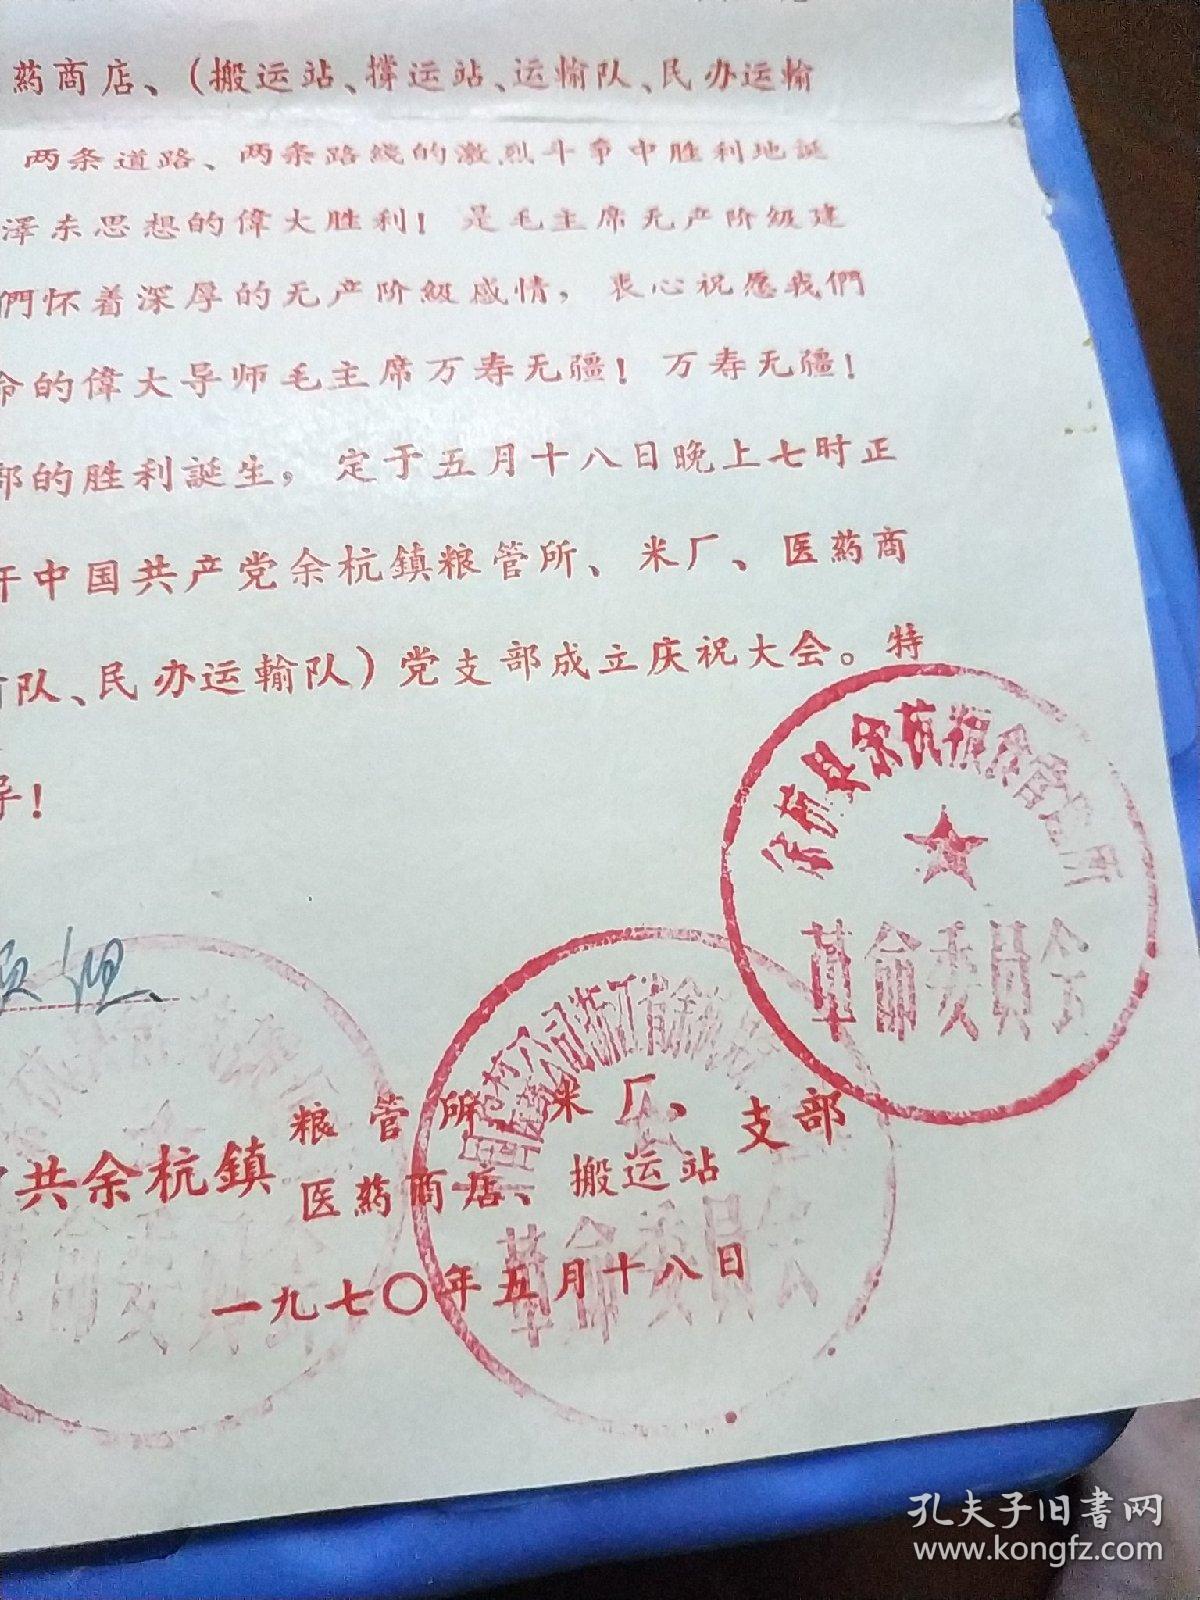 药商店、(搬运站、撐运站、运输队、民办运输
两条道路、两条路綫的激烈斗争中胜利地誕
泽东思想的偉大胜利！是毛主席无产阶級建
們怀着深厚的无产阶級感情，衷心祝愿我們
命的偉大导师毛主席万寿无疆！万寿无疆！
部的胜利誕生，定于五月十八日晚上七时正
开中国共产党余杭鎮粮管所、米厂、医药商
队、民办运輸队）党支部成立庆祝大会。特
导！
余杭县余杭粮食管理所
革命委员会
革命委員会
共余杭鎮
粮管所、米厂、
医药商店、搬运站
支部
一九七〇年五月十八日
孔夫子旧書网
www.kongfz.com